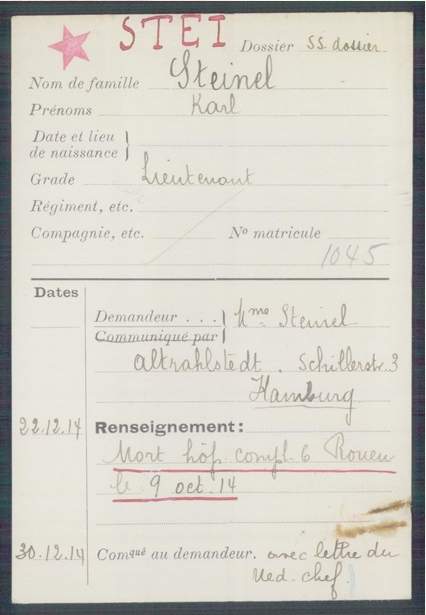 STEI Dossier SS. dossier
Nom de famille Steinel
Prénoms Karl
Date et lieu
de naissance
Grade Lieutenant
Régiment, etc.
Compagnie, etc. No matricule
1045
Dates
Demandeur . . . Mme Steinel
Communiqué par
Altrahlstedt. Schillerstr. 3
Hamburg
22.12.14 Renseignement :
Mort hôp. compl. 6 Rouen
le 9 oct. 14
30.12.14 Comqué au demandeur. avec lettre du
Med. chef.